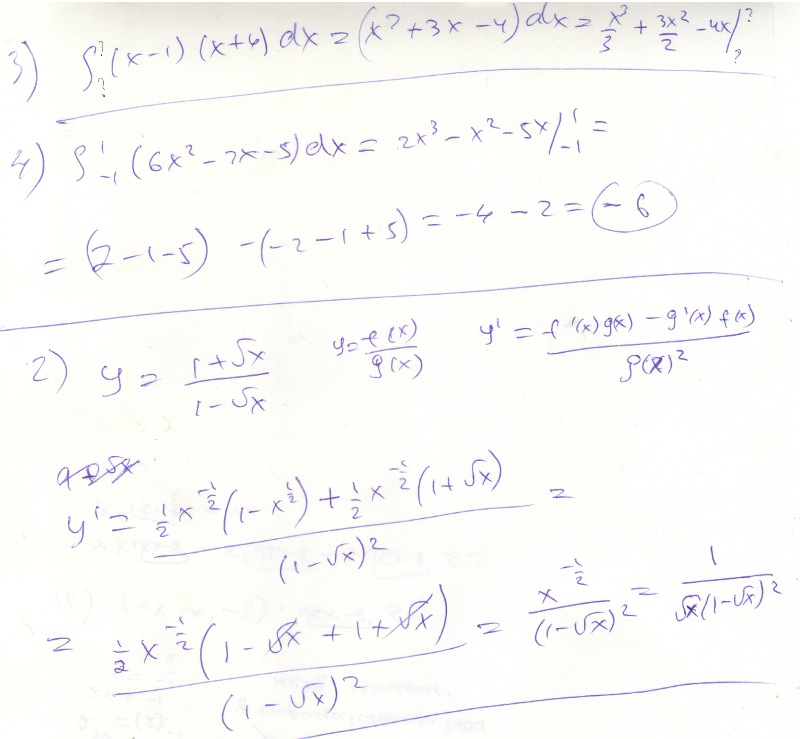 3) ∫?? (x-1) (x+4) dx = (x²+3x-4) dx = x³/3 + 3x²/2 - 4x/??
4) ∫¹₋₁ (6x²-2x-5) dx = 2x³-x²-5x/¹₋₁ =
= (2-1-5) -(-2-1+5) = -4 -2 = -6
2) y = (1+√x)/(1-√x) y = f(x)/g(x) y' = (f'(x)g(x) - g'(x) f(x))/g(x)²
y' = (½x^(-½)(1-x^½) + ½x^(-½)(1+√x))/(1-√x)² =
= ½x^(-½)(1-√x+1+√x)/(1-√x)² = x^(-½)/(1-√x)² = 1/(√x(1-√x)²)